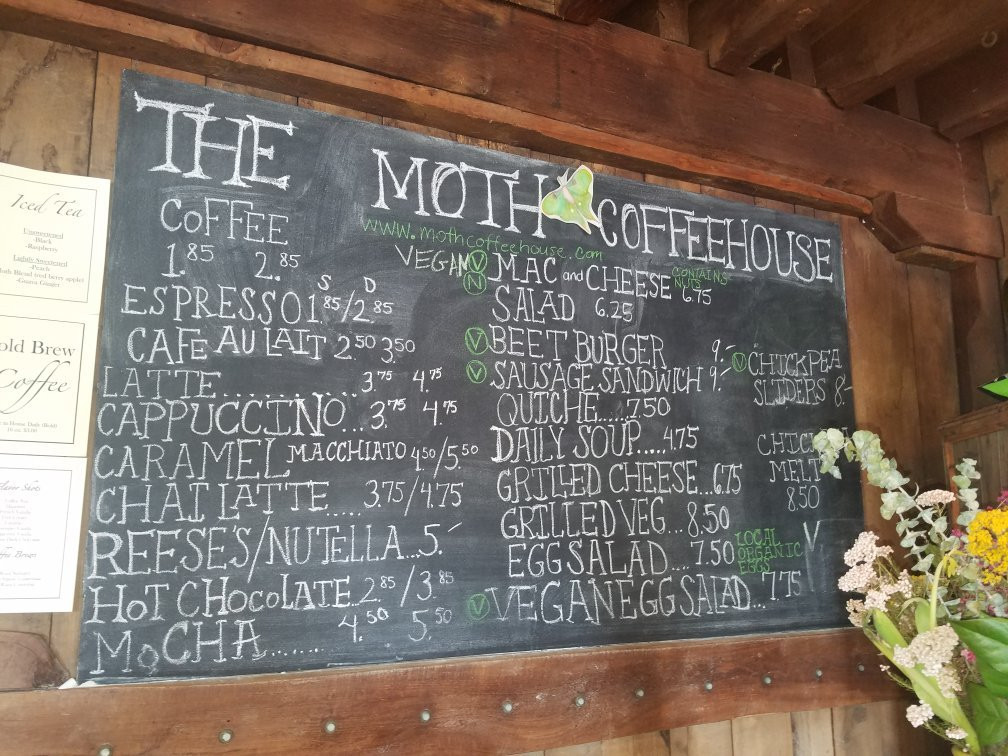 THE MOTH COFFEEHOUSE
www.mothcoffeehouse.com
COFFEE
1.85 2.85
S D
ESPRESSO 1.85/2.85
CAFE AU LAIT 2.50 3.50
LATTE............ 3.75 4.75
CAPPUCCINO... 3.75 4.75
CARAMEL MACCHIATO 4.50/5.50
CHAI LATTE..... 3.75/4.75
REESE'S/NUTELLA... 5.-
HOT CHOCOLATE... 2.85/3.85
MOCHA....... 4.50 5.50
VEGAN V N MAC and CHEESE CONTAINS NUTS 6.75
SALAD 6.25
V BEET BURGER 9.-
V SAUSAGE SANDWICH 9.-
QUICHE.... 7.50
DAILY SOUP.... 4.75
GRILLED CHEESE... 6.75
GRILLED VEG... 8.50
EGG SALAD.... 7.50 LOCAL ORGANIC EGGS
V VEGAN EGG SALAD... 7.75
V CHICKPEA
SLIDERS 8.-
MELT
8.50
V
Iced Tea
Unsweetened
-Black
-Raspberry
Lightly Sweetened
-Peach
-Guava Ginger
old Brew
Coffee